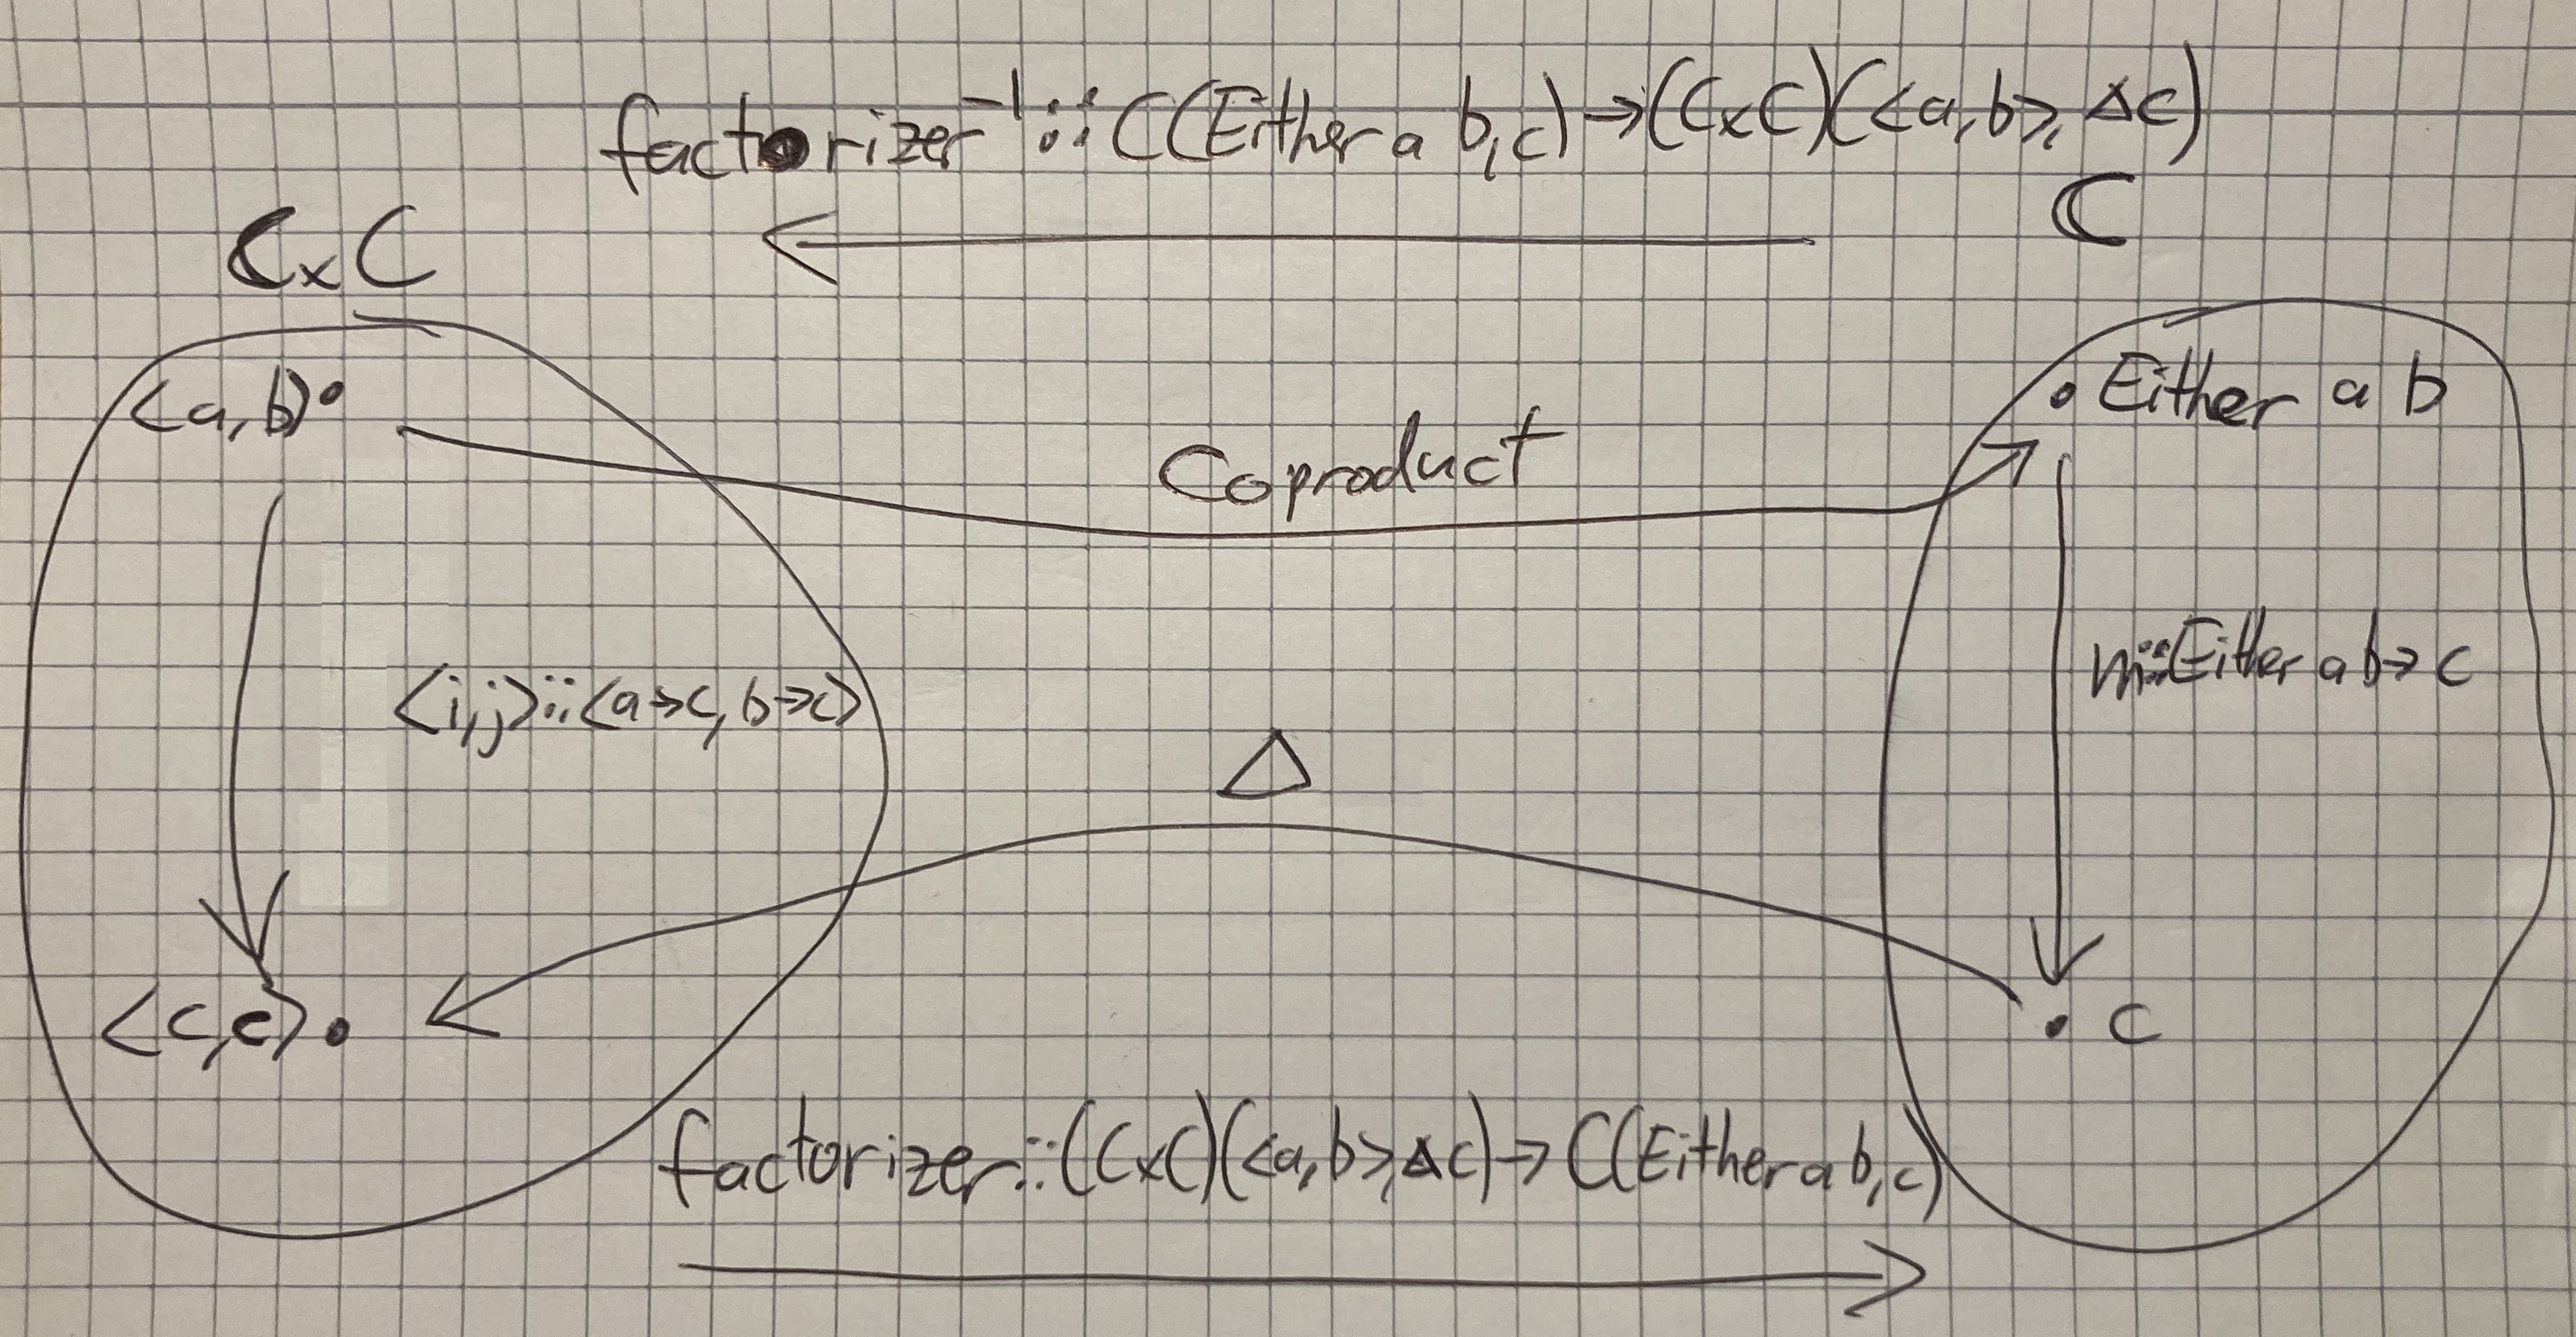 factorizer⁻¹::C(Either a b,c)→(C×C)(<a,b>,Δc)
C×C
C
<a,b>
Either a b
Coproduct
<i,j>::<a→c,b→c>
m::Either a b→c
Δ
<c,c>
c
factorizer::(C×C)(<a,b>,Δc)→C(Either a b,c)